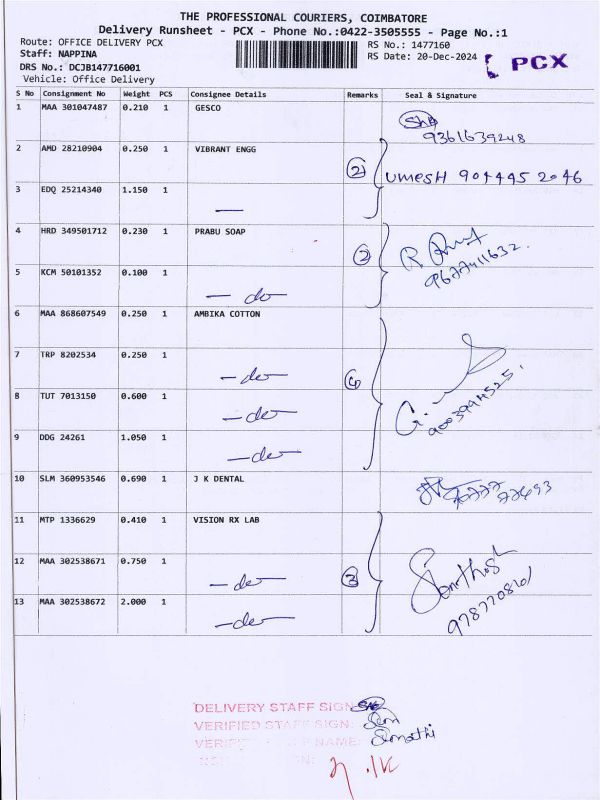 THE PROFESSIONAL COURIERS, COIMBATORE
Delivery Runsheet - PCX - Phone No.:0422-3505555 - Page No.:1
Route: OFFICE DELIVERY PCX
RS No.: 1477160
Staff: NAPPINA
RS Date: 20-Dec-2024
PCX
DRS No.: DCJB147716001
Vehicle: Office Delivery
S No Consignment No Weight PCS Consignee Details Remarks Seal & Signature
1 MAA 301047487 0.210 1 GESCO
9361639248
2 AMD 28210904 0.250 1 VIBRANT ENGG
2 UMESH 904445 2046
3 EDQ 25214340 1.150 1 —
4 HRD 349501712 0.230 1 PRABU SOAP
2 9677411632.
5 KCM 50101352 0.100 1 — do —
6 MAA 868607549 0.250 1 AMBIKA COTTON
7 TRP 8202534 0.250 1 — do —
4
8 TUT 7013150 0.600 1 — do —
G. 9003944525.
9 DDG 24261 1.050 1 — do —
10 SLM 360953546 0.690 1 J K DENTAL
11 MTP 1336629 0.410 1 VISION RX LAB
12 MAA 302538671 0.750 1 — do —
3 Santhosh
13 MAA 302538672 2.000 1 — do —
DELIVERY STAFF SIGN
VERIFIED STAFF SIGN:
NAME: